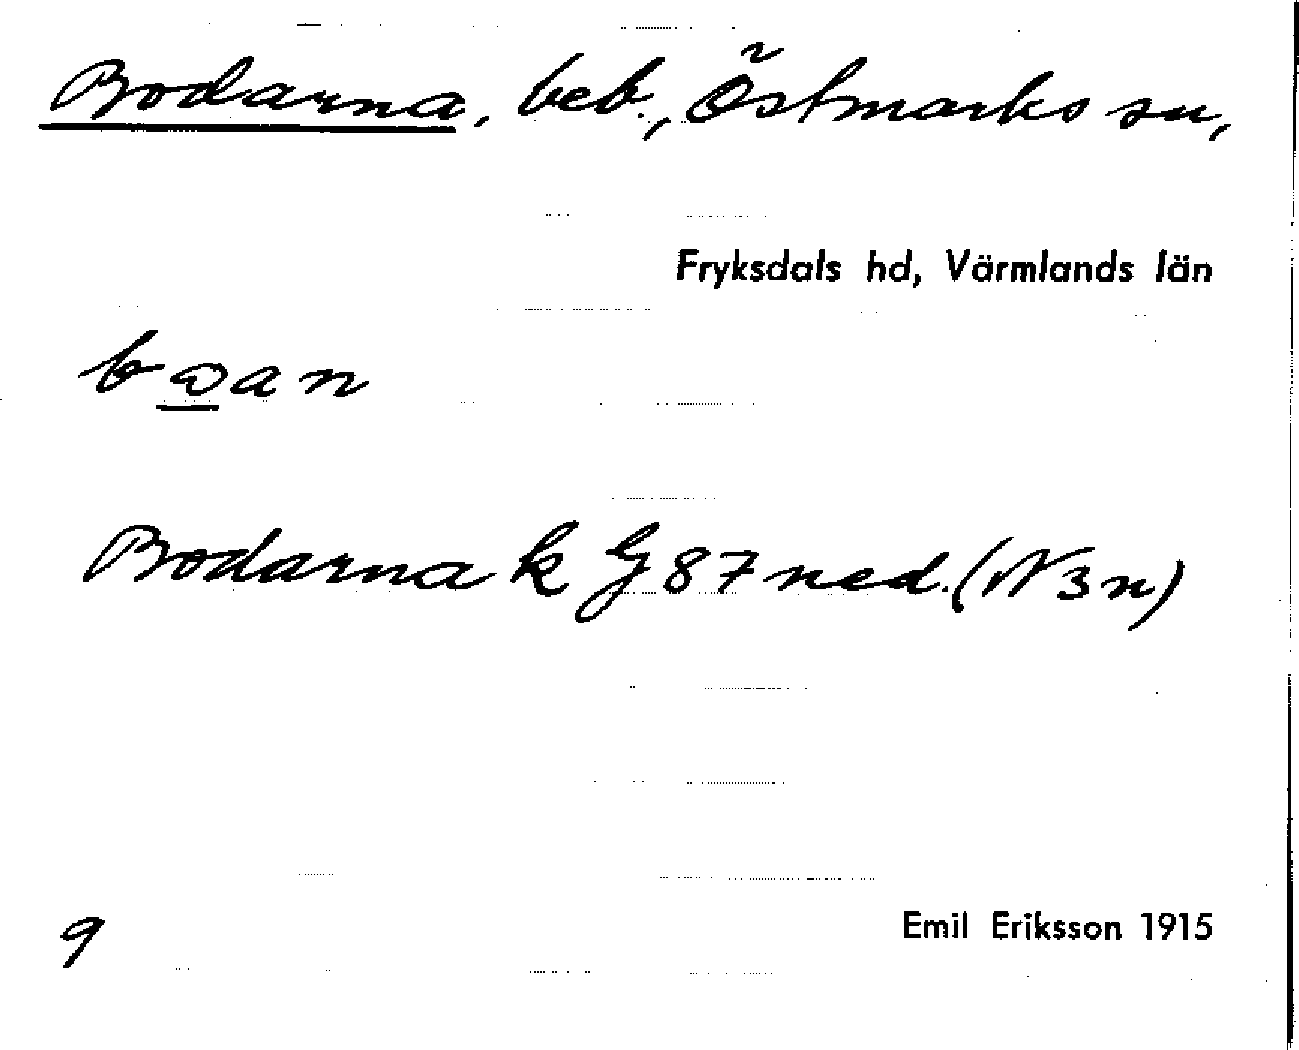 Bodarna, beb., Östmarks sn,
Fryksdals hd, Värmlands län
Bodarna k G 87 ned. (N3n)
9
Emil Eriksson 1915